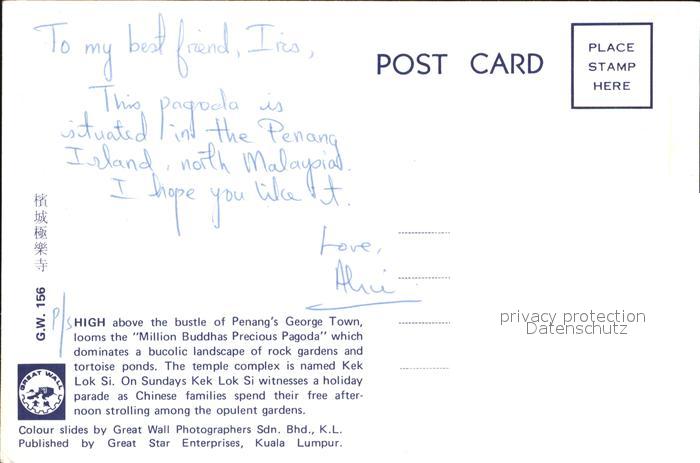 To my best friend, Iris,
This pagoda is
situated in the Penang
Island, north Malaysia.
I hope you like it.
Love,
POST CARD
PLACE
STAMP
HERE
檳城極樂寺
G.W. 156
P/s
HIGH above the bustle of Penang's George Town,
looms the "Million Buddhas Precious Pagoda" which
dominates a bucolic landscape of rock gardens and
tortoise ponds. The temple complex is named Kek
Lok Si. On Sundays Kek Lok Si witnesses a holiday
parade as Chinese families spend their free after-
noon strolling among the opulent gardens.
GREAT WALL
Colour slides by Great Wall Photographers Sdn. Bhd., K.L.
Published by Great Star Enterprises, Kuala Lumpur.
privacy protection
Datenschutz